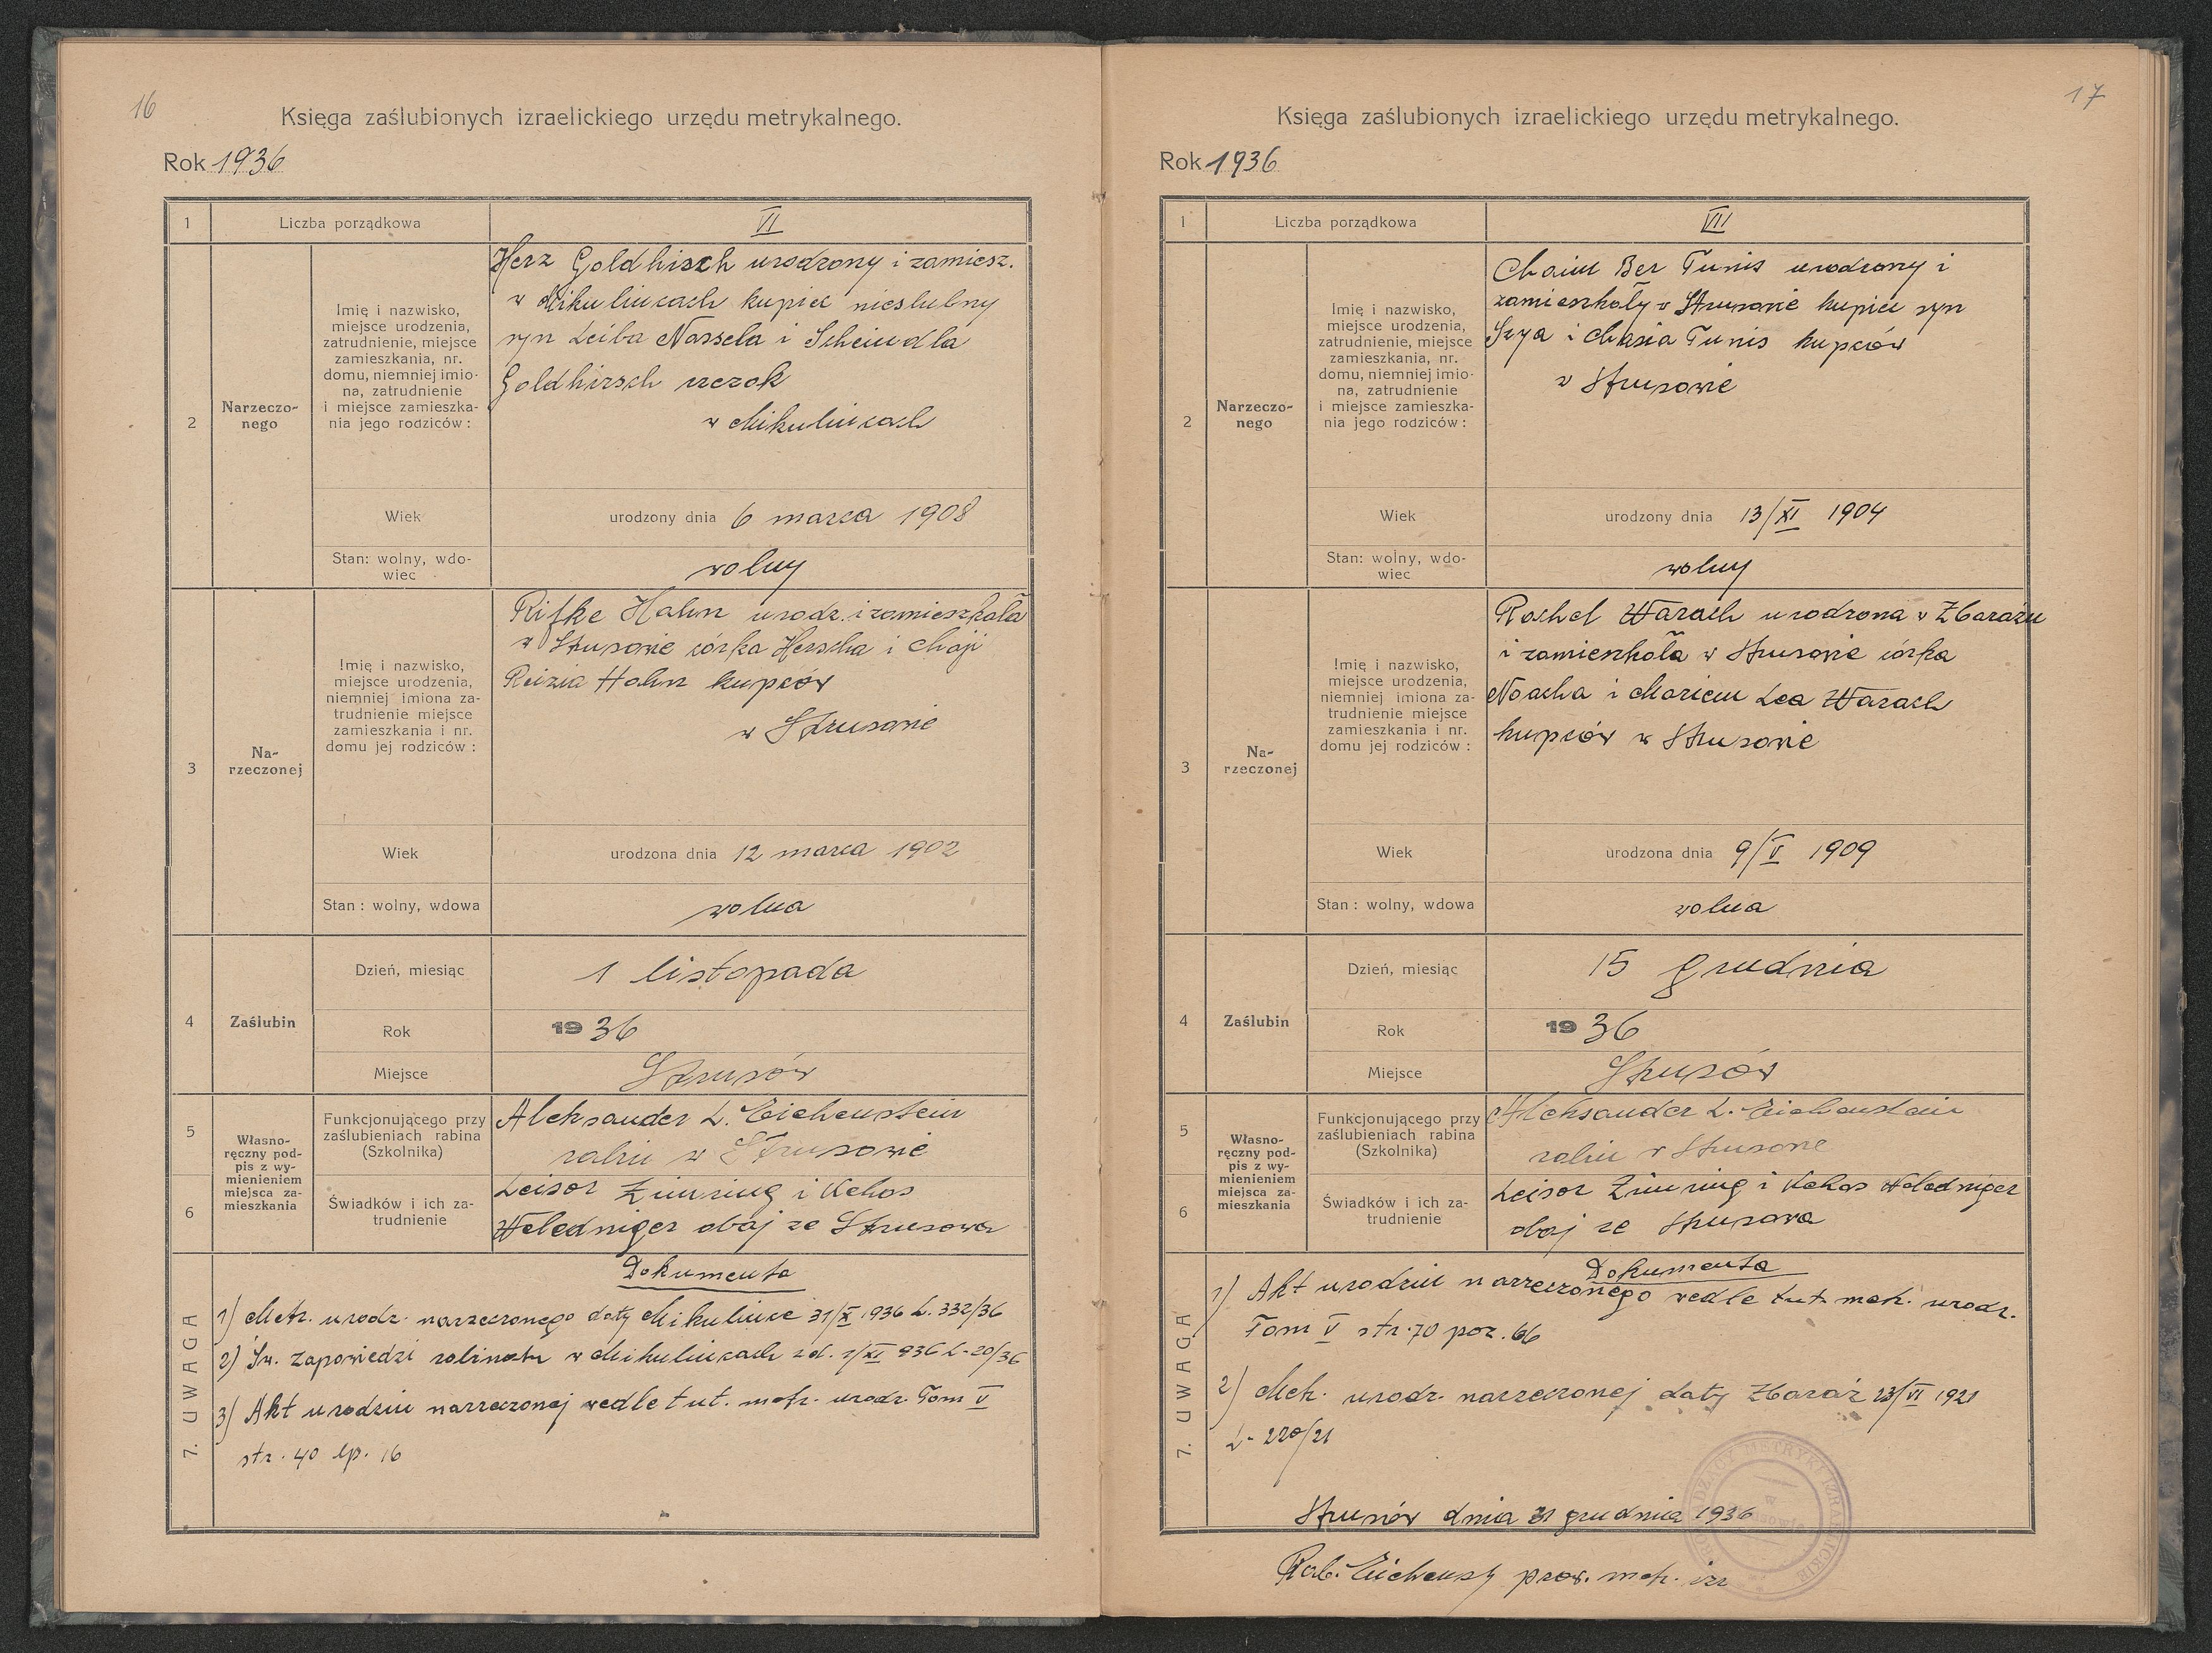 16
Księga zaślubionych izraelickiego urzędu metrykalnego.
Rok 1936
1
Liczba porządkowa
VI
2
Narzeczo-
nego
Imię i nazwisko,
miejsce urodzenia,
zatrudnienie, miejsce
zamieszkania, nr.
domu, niemniej imio-
na, zatrudnienie
i miejsce zamieszka-
nia jego rodziców:
Herz Goldhirsch urodzony i zamiesz.
w Mikulincach kupiec nieslubny
syn Leiba Nassela i Scheindla
Goldhirsch
w Mikulincach
Wiek
urodzony dnia 6 marca 1908
Stan: wolny, wdo-
wiec
wolny
3
Na-
rzeczonej
Imię i nazwisko,
miejsce urodzenia,
niemniej imiona za-
trudnienie miejsce
zamieszkania i nr.
domu jej rodziców:
Rifke Hahn urodz. i zamieszkała
w Strusowie córka Herscha i Chaji
Reizia Hahn kupców
w Strusowie
Wiek
urodzona dnia 12 marca 1902
Stan: wolny, wdowa
wolna
4
Zaślubin
Dzień, miesiąc
1 listopada
Rok
1936
Miejsce
Strusów
5
6
Własno-
ręczny pod-
pis z wy-
mienieniem
miejsca za-
mieszkania
Funkcjonującego przy
zaślubieniach rabina
(Szkolnika)
Aleksander L. Eichenstein
rabin w Strusowie
Świadków i ich za-
trudnienie
Leisor Zimring i Kehos
Weledniger obaj ze Strusowa
7. UWAGA
Dokumenta
1) Metr. urodz. narzeczonego daty Mikulince 31/X 1936 L. 332/36
2) Św. zapowiedzi rabinatu w Mikulincach z d. 1/XI 936 L. 20/36
3) Akt urodzin narzeczonej wedle tut. metr. urodz. Tom V
str. 40 lp. 16
17
Księga zaślubionych izraelickiego urzędu metrykalnego.
Rok 1936
1
Liczba porządkowa
VII
2
Narzeczo-
nego
Imię i nazwisko,
miejsce urodzenia,
zatrudnienie, miejsce
zamieszkania, nr.
domu, niemniej imio-
na, zatrudnienie
i miejsce zamieszka-
nia jego rodziców:
Chaim Ber Tunis urodzony i
zamieszkały w Strusowie kupiec syn
i Chasia Tunis kupców
w Strusowie
Wiek
urodzony dnia 13/XI 1904
Stan: wolny, wdo-
wiec
wolny
3
Na-
rzeczonej
Imię i nazwisko,
miejsce urodzenia,
niemniej imiona za-
trudnienie miejsce
zamieszkania i nr.
domu jej rodziców:
Rachel Warach urodzona w Zbarażu
i zamieszkała w Strusowie córka
Noacha i Mariem Lea Warach
kupców w Strusowie
Wiek
urodzona dnia 9/V 1909
Stan: wolny, wdowa
wolna
4
Zaślubin
Dzień, miesiąc
15 grudnia
Rok
1936
Miejsce
Strusów
5
6
Własno-
ręczny pod-
pis z wy-
mienieniem
miejsca za-
mieszkania
Funkcjonującego przy
zaślubieniach rabina
(Szkolnika)
Aleksander L. Eichenstein
rabin w Strusowie
Świadków i ich za-
trudnienie
Leisor Zimring i Kehos Weledniger
obaj ze Strusowa
7. UWAGA
Dokumenta
1) Akt urodzin narzeczonego wedle tut. metr. urodz.
Tom V str. 70 poz. 66
2) Metr. urodz. narzeczonej daty Zbaraż 23/VI 1921
L. 220/21
Strusów dnia 31 grudnia 1936
Rab. Eichenst prow. metr. izr
METRYKI IZRAELICKIE